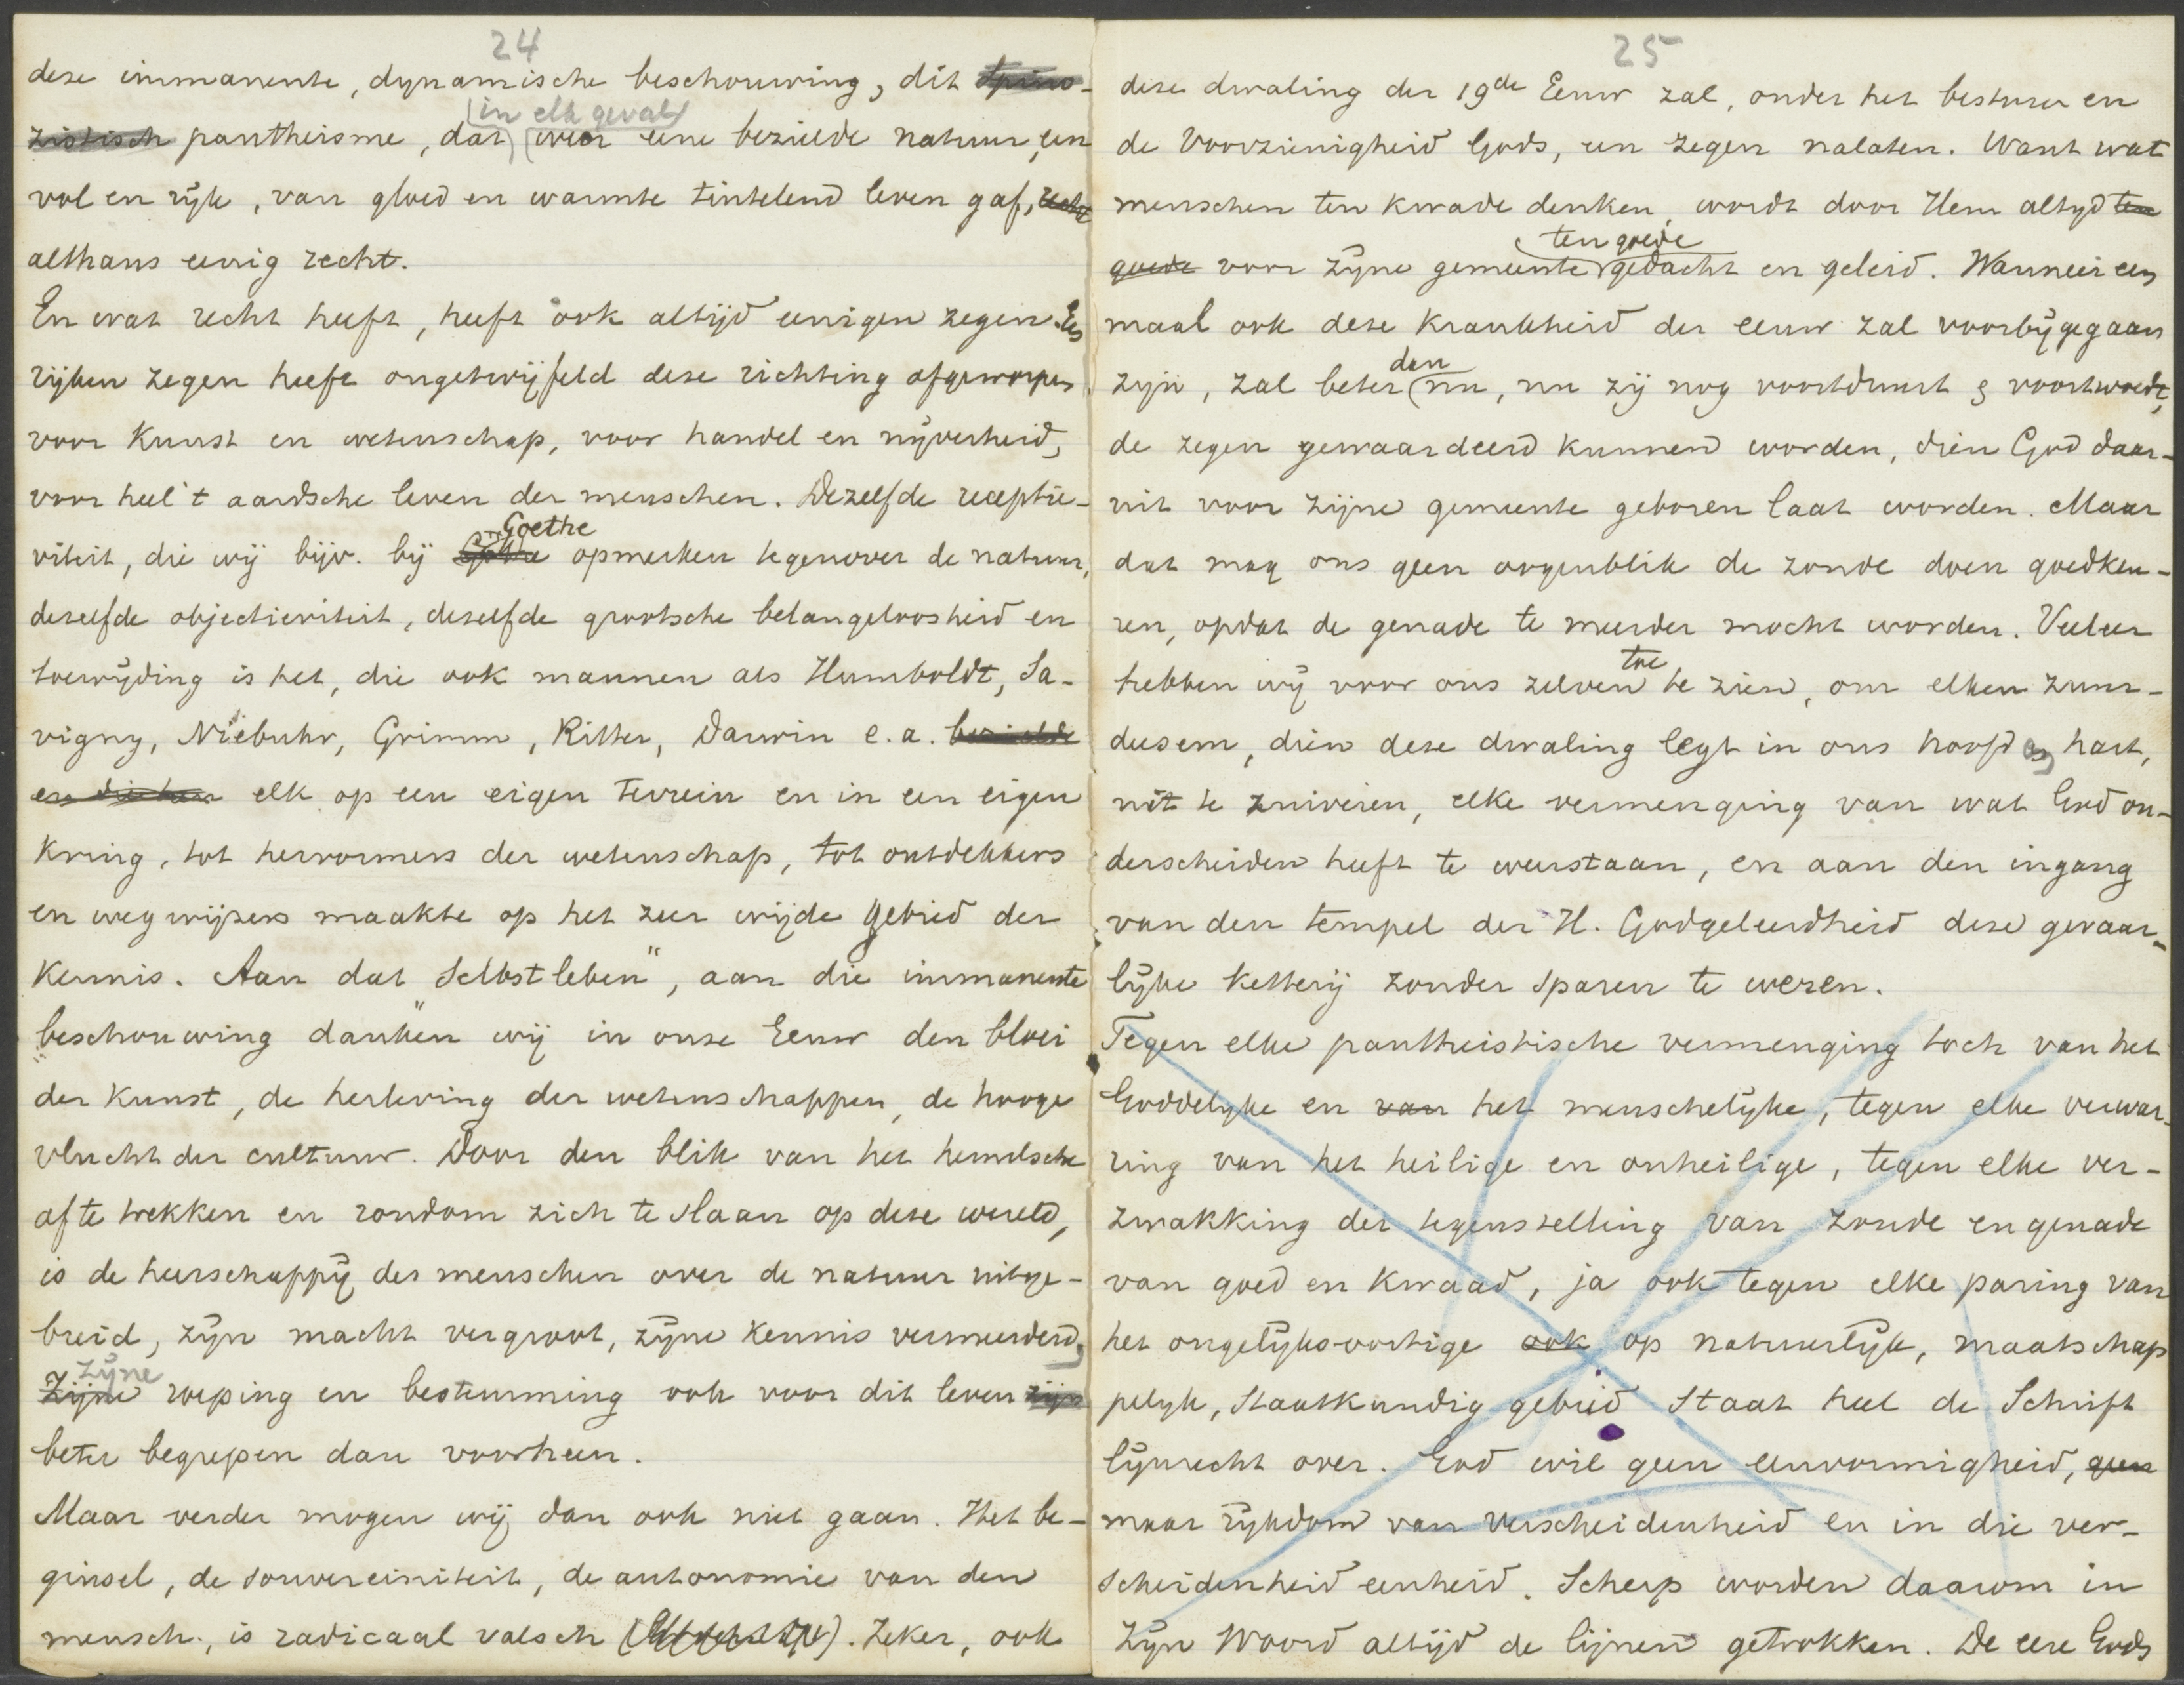 24
deze immanente, dynamische beschouwing, dit Spino-
zistisch pantheisme, dat in elk geval weer eene bezielde natuur, een
vol en rijk, van gloed en warmte tintelend leven gaf, recht
althans eenig recht.
En wat recht heeft, heeft ook altijd eenigen zegen. Een
rijken zegen heeft ongetwijfeld deze richting afgeworpen
voor Kunst en wetenschap, voor handel en nijverheid,
voor heel 't aardsche leven der menschen. Dezelfde receptie-
viteit, die wij bijv. bij Göthe Goethe opmerken tegenover de natuur,
dezelfde objectieviteit, dezelfde grootsche belangeloosheid en
toewijding is het, die ook mannen als Humboldt, Sa-
vigny, Niebuhr, Grimm, Ritter, Darwin e.a. bezielde
en die hen elk op een eigen terrein en in een eigen
Kring, tot hervormers der wetenschap, tot ontdekkers
en wegwijzers maakte op het zeer wijde gebied der
Kennis. Aan dat „Selbstleben”, aan die immanente
beschouwing danken wij in onze Eeuw den bloei
der Kunst, de herleving der wetenschappen, de hooge
vlucht der cultuur. Door den blik van het hemelsche
af te trekken en rondom zich te slaan op deze wereld,
is de heerschappij des menschen over de natuur uitge-
breid, zijn macht vergroot, zijne Kennis vermeerderd,
Zijne zijne roeping en bestemming ook voor dit leven zijn
beter begrepen dan voorheen.
Maar verder mogen wij dan ook niet gaan. Het be-
ginsel, de souvereiniteit, de autonomie van den
mensch, is radicaal valsch. Zeker, ook
25
deze dwaling der 19de Eeuw zal, onder het bestuur en
de Voorzienigheid Gods, een zegen nalaten. Want wat
menschen ten kwade denken, wordt door Hem altijd ten
goede voor zijne gemeente ten goede gedacht en geleid. Wanneer een
maal ook deze krankheid der eeuw zal voorbijgegaan
zijn, zal beter dan nu, nu zij nog voortduurt & voortwoedt,
de zegen gewaardeerd kunnen worden, dien God daar-
uit voor zijne gemeente geboren laat worden. Maar
dat mag ons geen oogenblik de zonde doen goedkeu-
ren, opdat de genade te meerder mocht worden. Veeleer
hebben wij voor ons zelven toe te zien, om elken zuur-
deesem, dien deze dwaling legt in ons hoofd en hart,
uit te zuiveren, elke vermenging van wat God on-
derscheiden heeft te weerstaan, en aan den ingang
van den tempel der H. Godgeleerdheid deze gevaar-
lijke ketterij zonder sparen te weren.
Tegen elke pantheistische vermenging toch van het
Goddelijke en van het menschelijke, tegen elke verwar-
ring van het heilige en onheilige, tegen elke ver-
zwakking der tegenstelling van zonde en genade
van goed en kwaad, ja ook tegen elke paring van
het ongelijksoortige ook op natuurlijk, maatschap
pelijk, staatkundig gebied staat heel de Schrift
lijnrecht over. God wil geen eenvormigheid, geen
maar rijkdom van verscheidenheid en in die ver-
scheidenheid eenheid. Scherp worden daarom in
Zijn Woord altijd de lijnen getrokken. De eere Gods